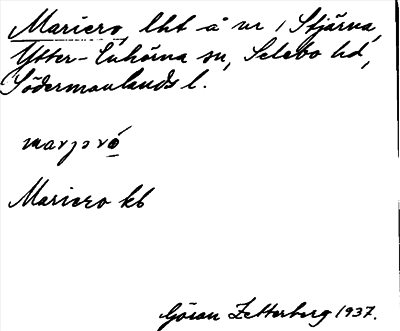 Mariero, lht å nr 1 Stjärna,
Ytter-Enhörna sn, Selebo hd,
Södermanlands l.
marjɔró
Mariero kb
Göran Zetterberg 1937.